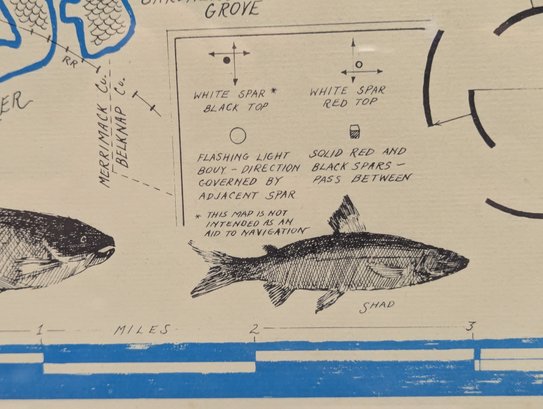 GROVE
RR
MERRIMACK Co.
BELKNAP Co.
WHITE SPAR *
BLACK TOP
WHITE SPAR
RED TOP
FLASHING LIGHT
BOUY - DIRECTION
GOVERNED BY
ADJACENT SPAR
SOLID RED AND
BLACK SPARS -
PASS BETWEEN
* THIS MAP IS NOT
INTENDED AS AN
AID TO NAVIGATION
SHAD
1 MILES 2 3